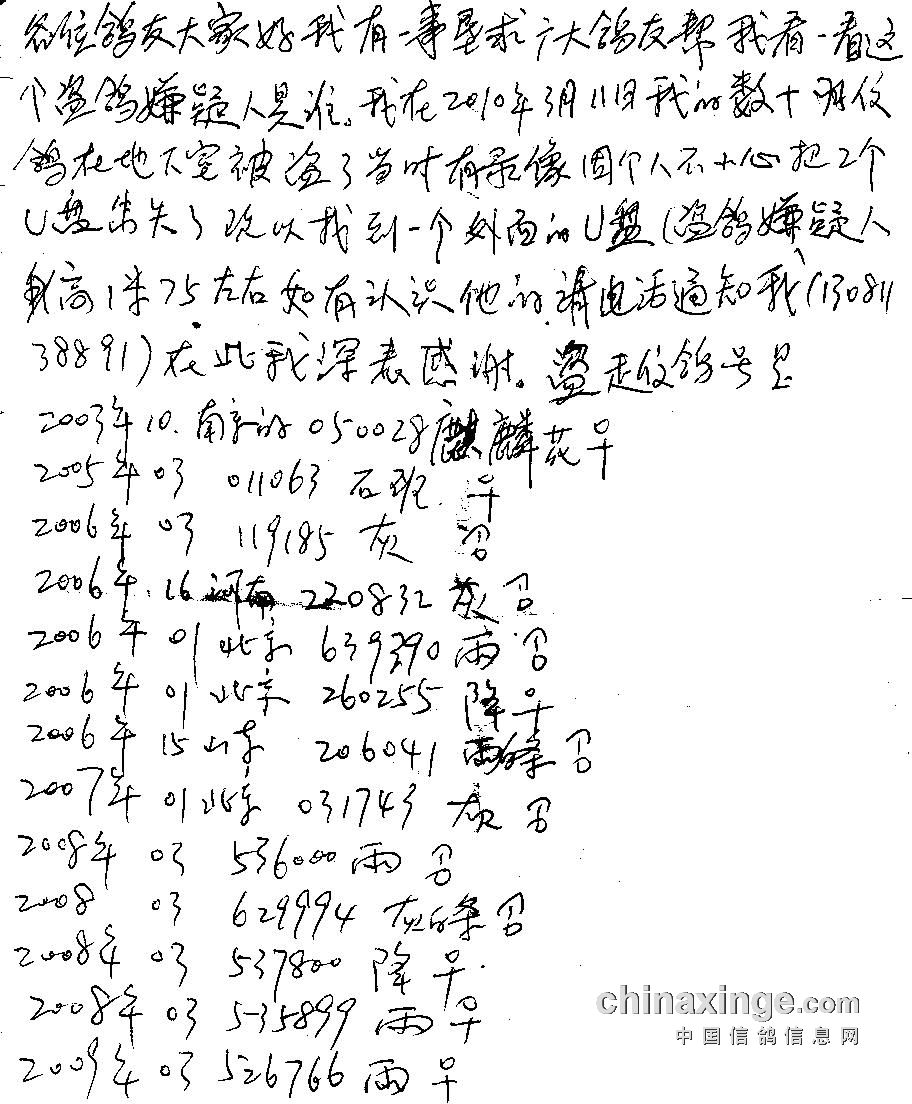 各位鸽友大家好我有一事恳求广大鸽友帮我看一看这
个盗鸽嫌疑人是谁。我在2010年3月11日我的数十羽信
鸽在地下室被盗了当时有录像因个人不小心把2个
U盘丢失了现以找到一个外面的U盘(盗鸽嫌疑人
身高1米75左右如有认识他的请电话通知我(130811
38891)在此我深表感谢。盗走信鸽号是
2003年10.南京的050028麒麟花♀
2005年03 011063 石班 ♀
2006年03 119185 灰
2006年.16河南220832灰
2006年01北京639390雨
2006年01北京260255降♀
2006年15山东206041雨白条
2007年01北京031743灰
2008年03 536000雨
2008 03 629994灰白条
2008年03 537800降♀
2008年03 535899雨♀
2009年03 526766雨♀
chinaxinge.com
中国信鸽信息网